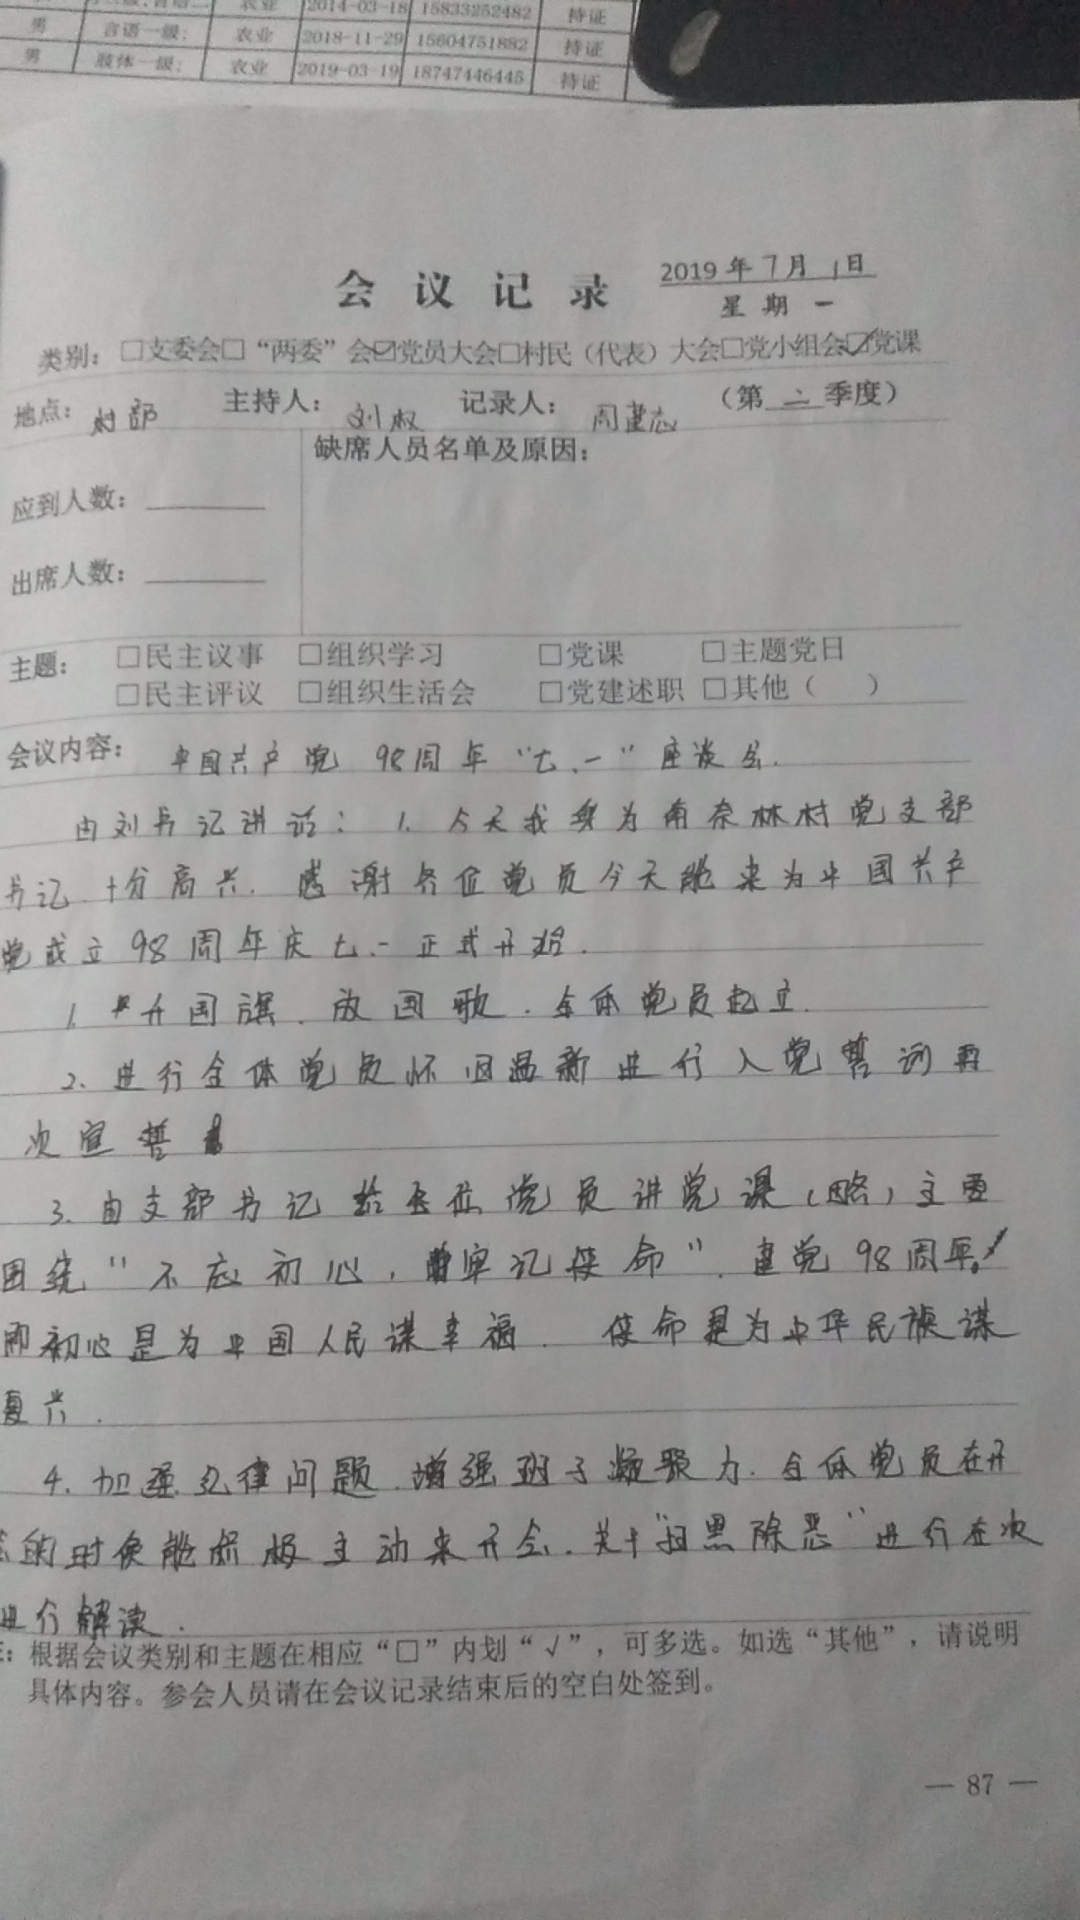 农业 2014-03-18 15833252482 持证
男 言语一级; 农业 2018-11-29 15604751882 持证
男 肢体一级; 农业 2019-03-19 18747446445 持证
会议记录 2019年7月1日
星期一
类别: □支委会□“两委”会☑党员大会□村民（代表）大会□党小组会☑党课
地点: 村部 主持人: 刘权 记录人: 周建志 （第二季度）
缺席人员名单及原因:
应到人数:
出席人数:
主题: □民主议事 □组织学习 □党课 □主题党日
□民主评议 □组织生活会 □党建述职 □其他（ ）
会议内容: 中国共产党 98周年“七、一”座谈会.
由刘书记讲话: 1. 今天我身为南奈林村党支部
书记.十分高兴. 感谢各位党员今天能来为中国共产
党成立98周年庆七.一正式开始.
1. 升国旗.放国歌.全体党员起立.
2. 进行全体党员怀旧温新进行入党誓词再
次宣誓
3. 由支部书记给各位党员讲党课(略)主要
围绕“不忘初心,牢记使命”.建党98周年.
即初心是为中国人民谋幸福. 使命是为中华民族谋
复兴.
4. 加强纪律问题.增强班子凝聚力.全体党员在开
会的时侯能积极主动来开会.关于“扫黑除恶”进行在次
进行解读.
注: 根据会议类别和主题在相应“□”内划“√”, 可多选。如选“其他”, 请说明
具体内容。参会人员请在会议记录结束后的空白处签到。
— 87 —